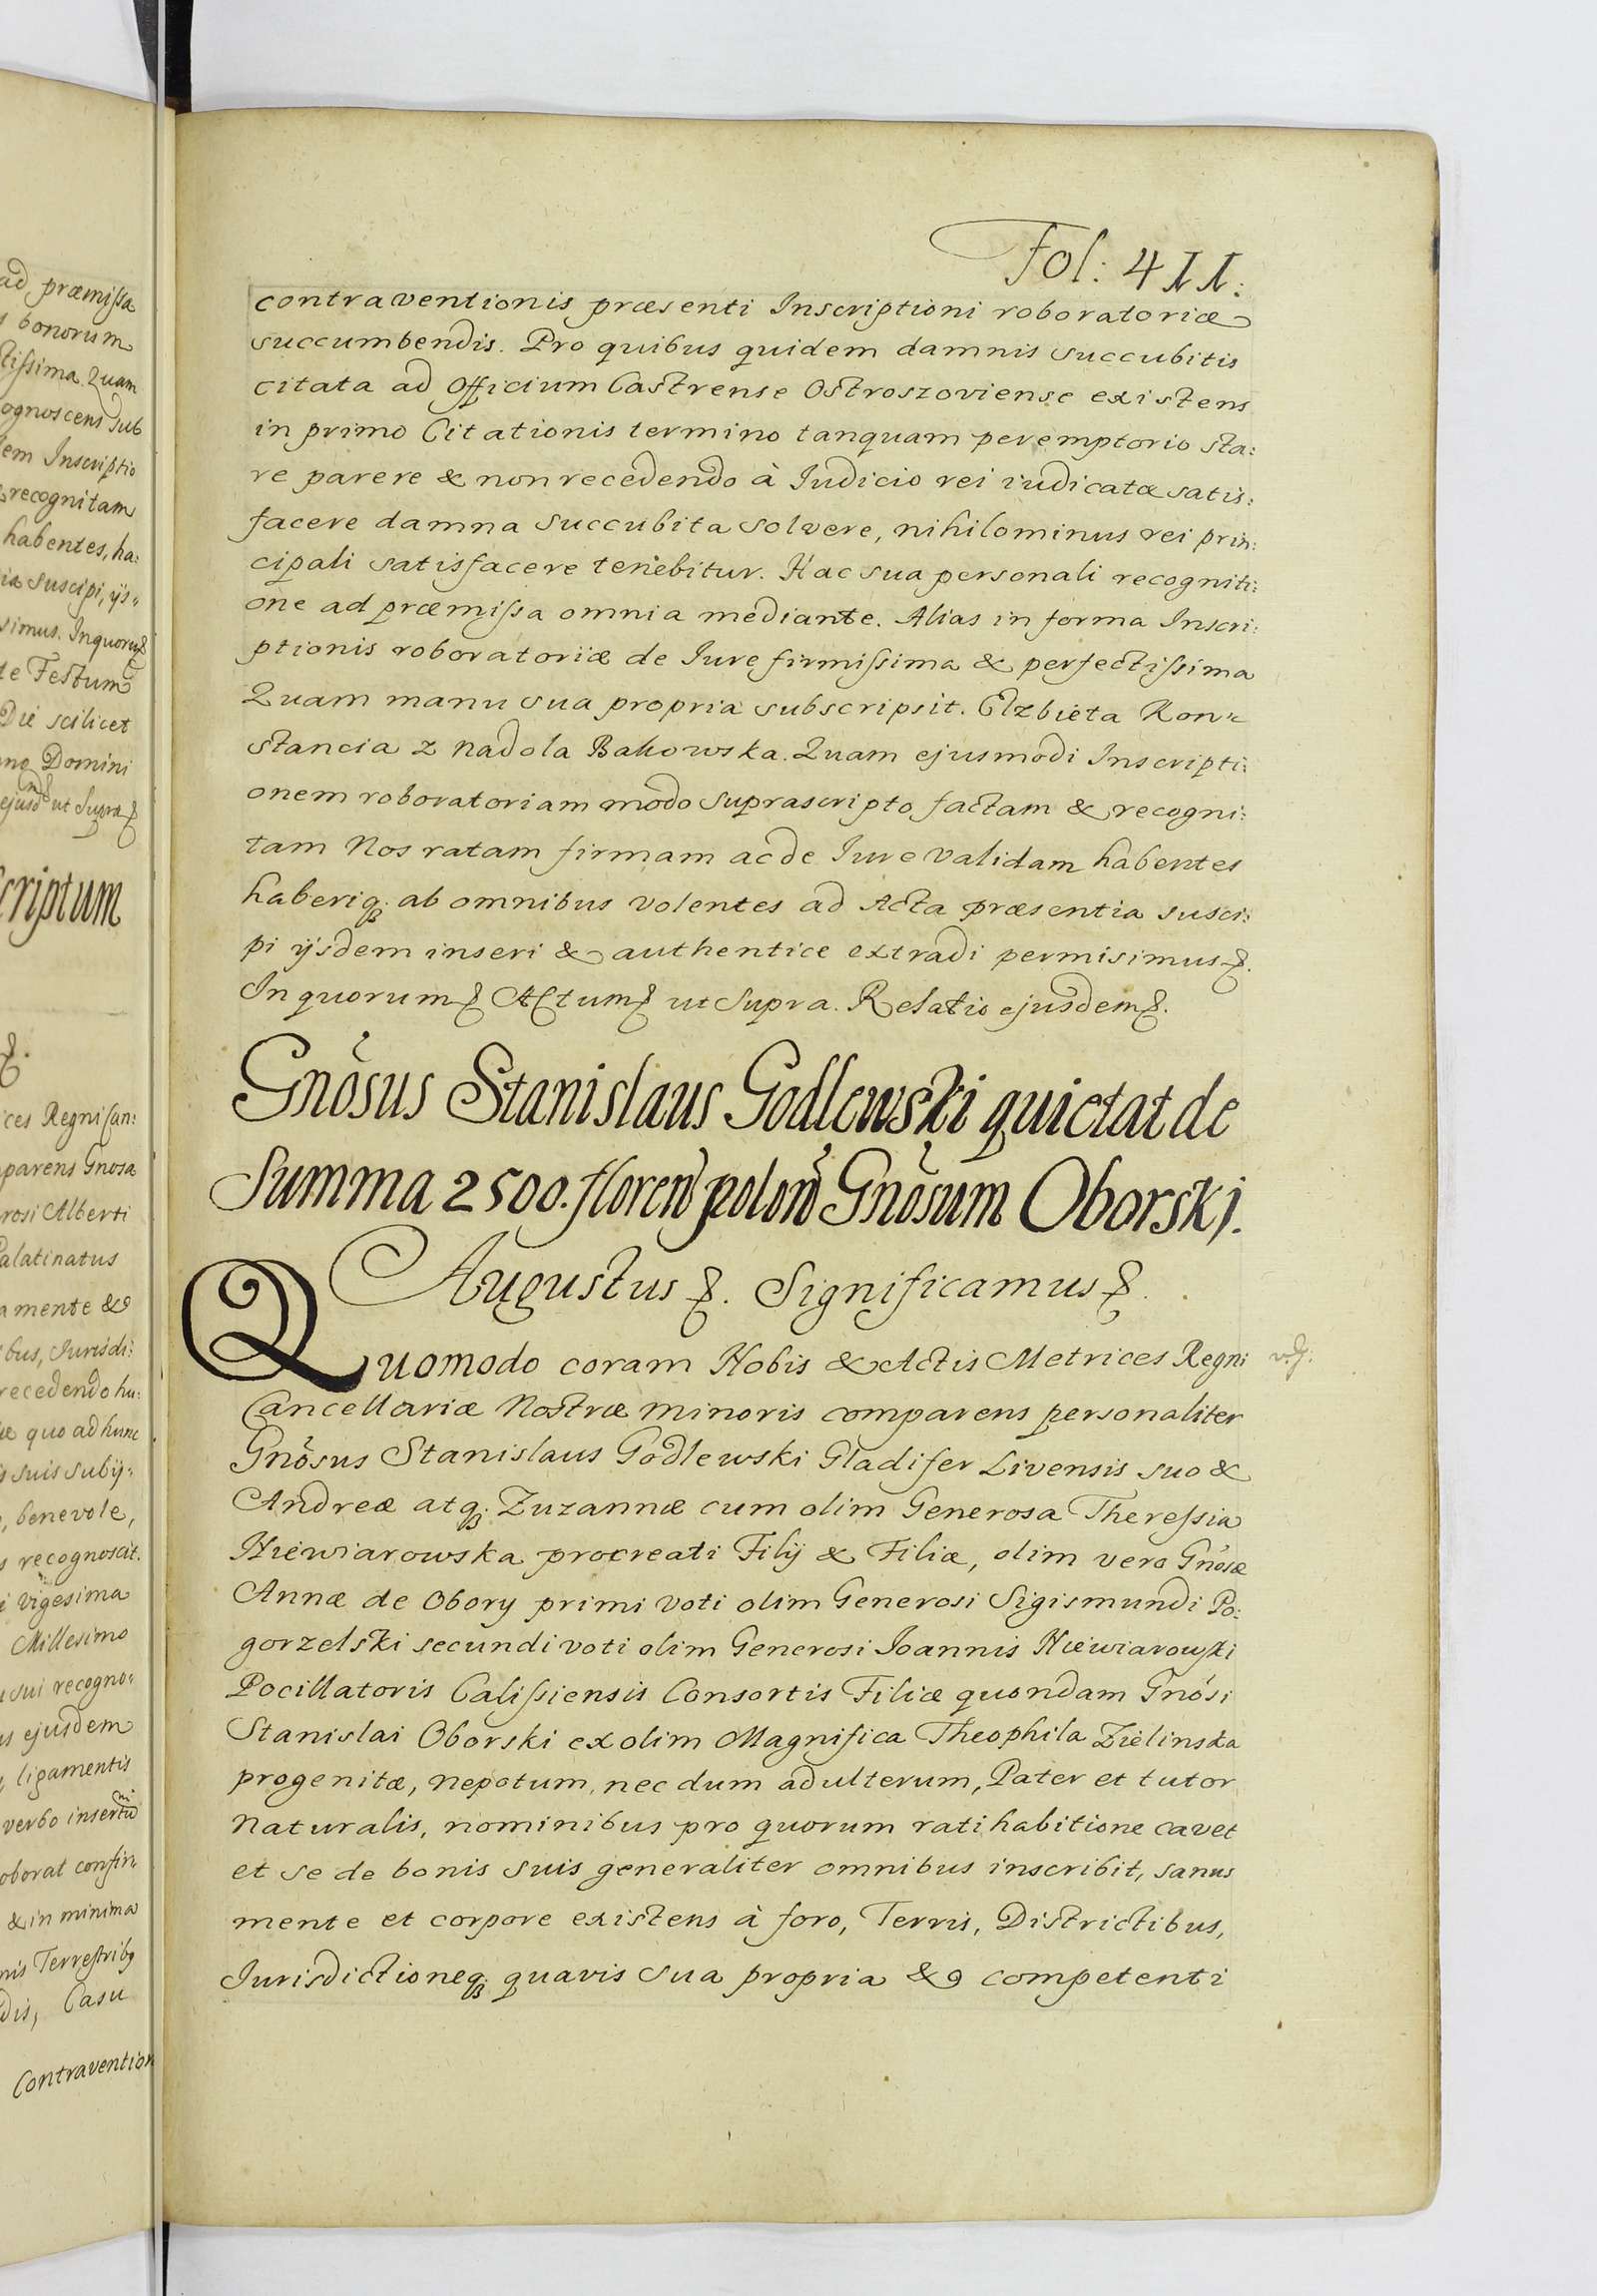 ad præmissa
bonorum
tissima. Quam
ognoscens sub
em Inscriptio
recognitam
habentes, ha:
ia suscipi, ijs=
simus. In quorum
te Festum
Die scilicet
no Domini
ejusd ut Supra
scriptum
ces Regni Can:
parens Gnosa
rosi Alberti
Palatinatus
a mente &
bus, Jurisdi:
recedendo hu:
quo ad hunc
suis subij=
, benevole,
s recognoscit.
i vigesima
Millesimo
sui recogno=
s ejusdem
, ligamentis
verbo insertu
oborat confir
& in minima
nis Terrestribq
dis, Casu
Contravention
Fol: 411:
contraventionis præsenti Inscriptioni roboratoriæ
succumbendis. Pro quibus quidem damnis succubitis
citata ad Officium Castrense Ostroszoviense existens
in primo Citationis termino tanquam peremptorio sta:
re parere & non recedendo à Iudicio rei iudicatæ satis:
facere damna succubita solvere, nihilominus rei prin:
cipali satisfacere tenebitur. Hac sua personali recogniti:
one ad præmissa omnia mediante. Alias in forma Inscri:
ptionis roboratoriæ de Iure firmissima & perfectissima
Quam manu sua propria subscripsit. Elzbieta Kon=
stancia z Nadola Bakowska. Quam ejusmodi Inscripti:
onem roboratoriam modo suprascripto factam & recogni:
tam Nos ratam firmam ac de Iure validam habentes
haberiq; ab omnibus volentes ad Acta præsentia susci:
pi ijsdem inseri & authentice extradi permisimus &.
In quorum & Actum & ut Supra. Relatio ejusdem &.
Gnosus Stanislaus Godlewski quietat de
Summa 2500. floren polon Gnosum Oborski.
Augustus &. Significamus &.
Quomodo coram Nobis & Actis Metrices Regni
Cancellariæ Nostræ minoris comparens personaliter
Gnosus Stanislaus Godlewski Gladifer Livensis suo &
Andreæ atq; Zuzannæ cum olim Generosa Theressia
Niewiarowska procreati Filij & Filiæ, olim vero Gnosæ
Annæ de Obory primi voti olim Generosi Sigismundi Po:
gorzelski secundi voti olim Generosi Ioannis Niewiarowski
Pocillatoris Calissiensis Consortis Filiæ quondam Gnosi
Stanislai Oborski ex olim Magnifica Theophila Zielinska
progenitæ, nepotum, nec dum adulterum, Pater et tutor
naturalis, nominibus pro quorum ratihabitione cavet
et se de bonis suis generaliter omnibus inscribit, sanus
mente et corpore existens à foro, Terris, Districtibus,
Iurisdictioneq; quavis sua propria & competenti